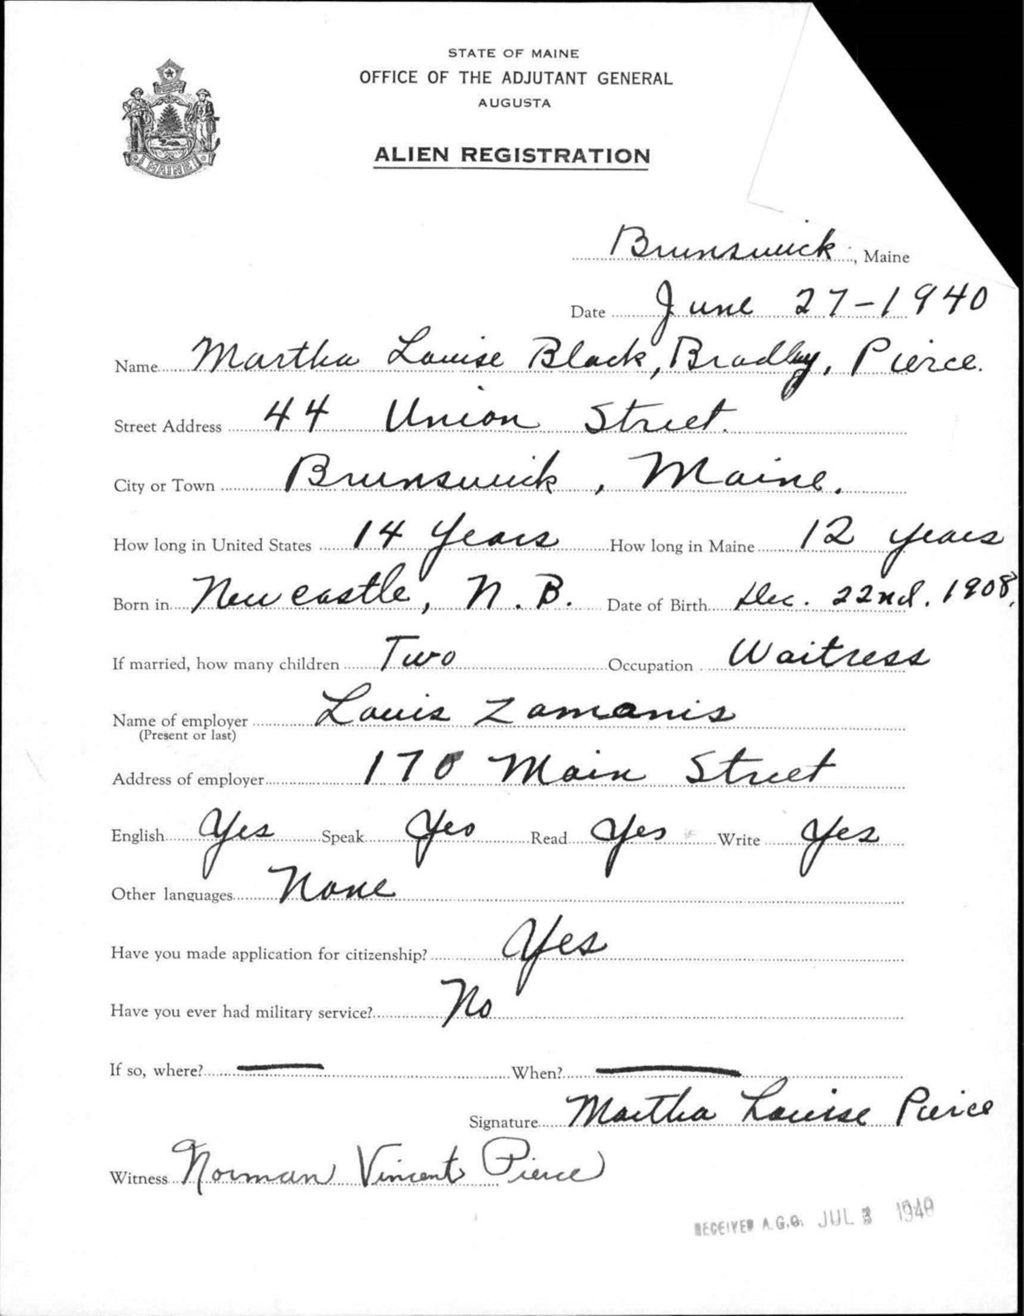 STATE OF MAINE
OFFICE OF THE ADJUTANT GENERAL
AUGUSTA
ALIEN REGISTRATION
MAINE
Brunswick, Maine
Date June 27-1940
Name Martha Louise Black, Bradley, Pierce.
Street Address 44 Union Street.
City or Town Brunswick, Maine.
How long in United States 14 years How long in Maine 12 years
Born in Newcastle, N.B. Date of Birth Dec. 22nd. 1908.
If married, how many children Two Occupation Waitress
Name of employer Louis Zamanis
(Present or last)
Address of employer 170 Main Street
English Yes Speak Yes Read Yes Write Yes
Other languages None
Have you made application for citizenship? Yes
Have you ever had military service? No
If so, where? — When? —
Signature Martha Louise Pierce
Witness Norman Vincent Pierce
RECEIVED A.G.O. JUL 3 1940